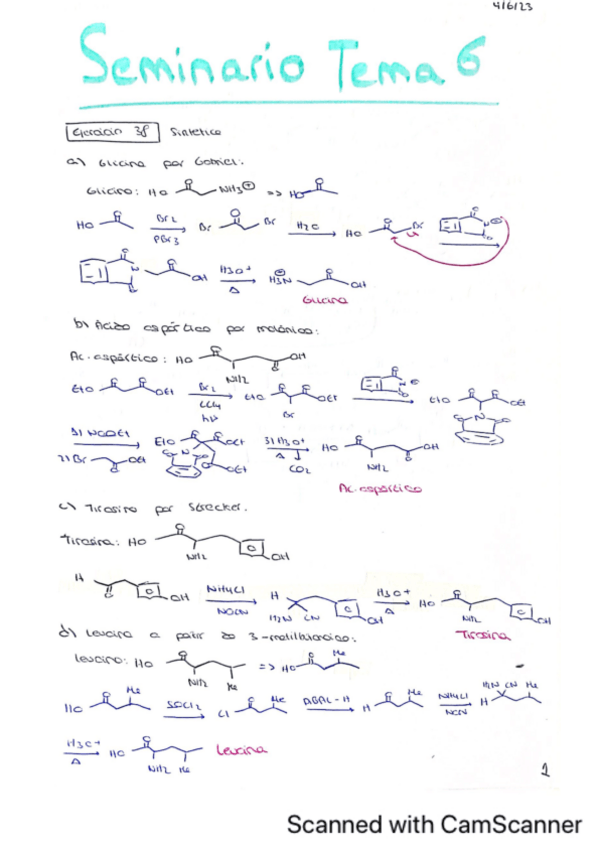 4/6/23
Seminario Tema 6
Ejercicio 38 Sintético
a) Glicina por Gabriel:
Glicina: HO NH3⊕ => HO
HO Br2 PBr3 Br Br H2O HO Br N O
N OH H3O+ Δ H3N OH
Glicina
b) Ácido aspártico por malónico:
Ac. aspártico: HO OH
NH2
EtO OEt Br2 CCl4 hν EtO OEt Br EtO OEt
N
3) H3O+ Δ CO2 HO OH
NH2
Ac. aspártico
c) Tirosina por Strecker.
Tirosina: HO NH2 OH
H OH NH4Cl NaCN H H2N CN OH H3O+ Δ HO NH2 OH
Tirosina
d) Leucina a partir de 3-metilbutanoico:
Leucina: HO NH2 Me => HO Me
HO Me SOCl2 Cl Me H Me NH4Cl NaCN H H2N CN Me
H3O+ Δ HO NH2 Me Leucina
1
Scanned with CamScanner